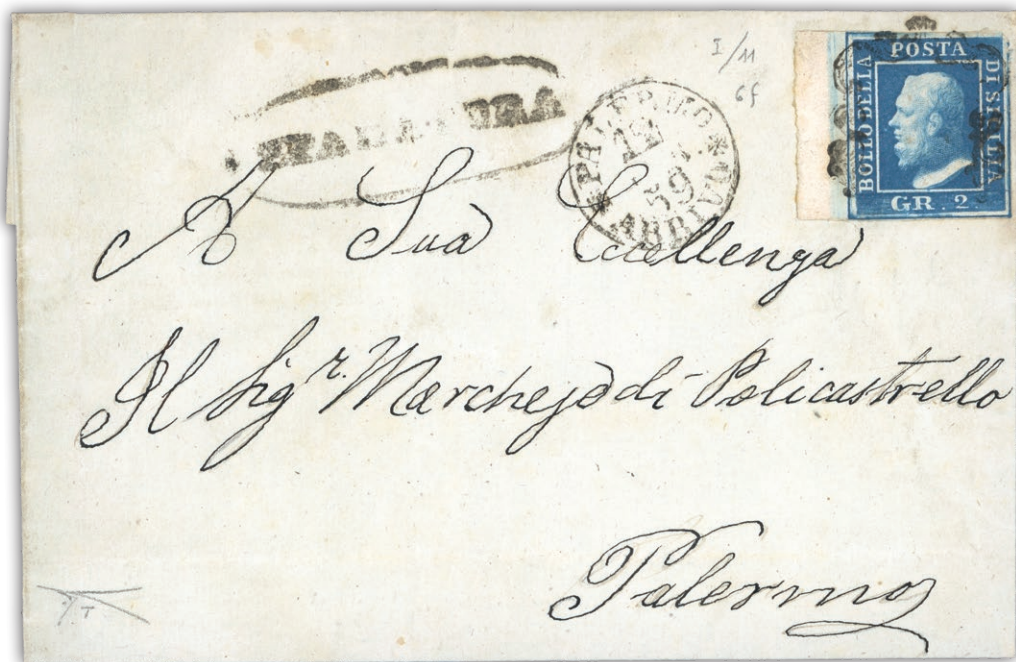 I/11
6f
BOLLO DELLA
POSTA
DI SICILIA
GR. 2.
PALERMO
12
59
ARRIVO
A Sua Eccellenza
Il Sig.r Marchese di Policastrello
Palermo